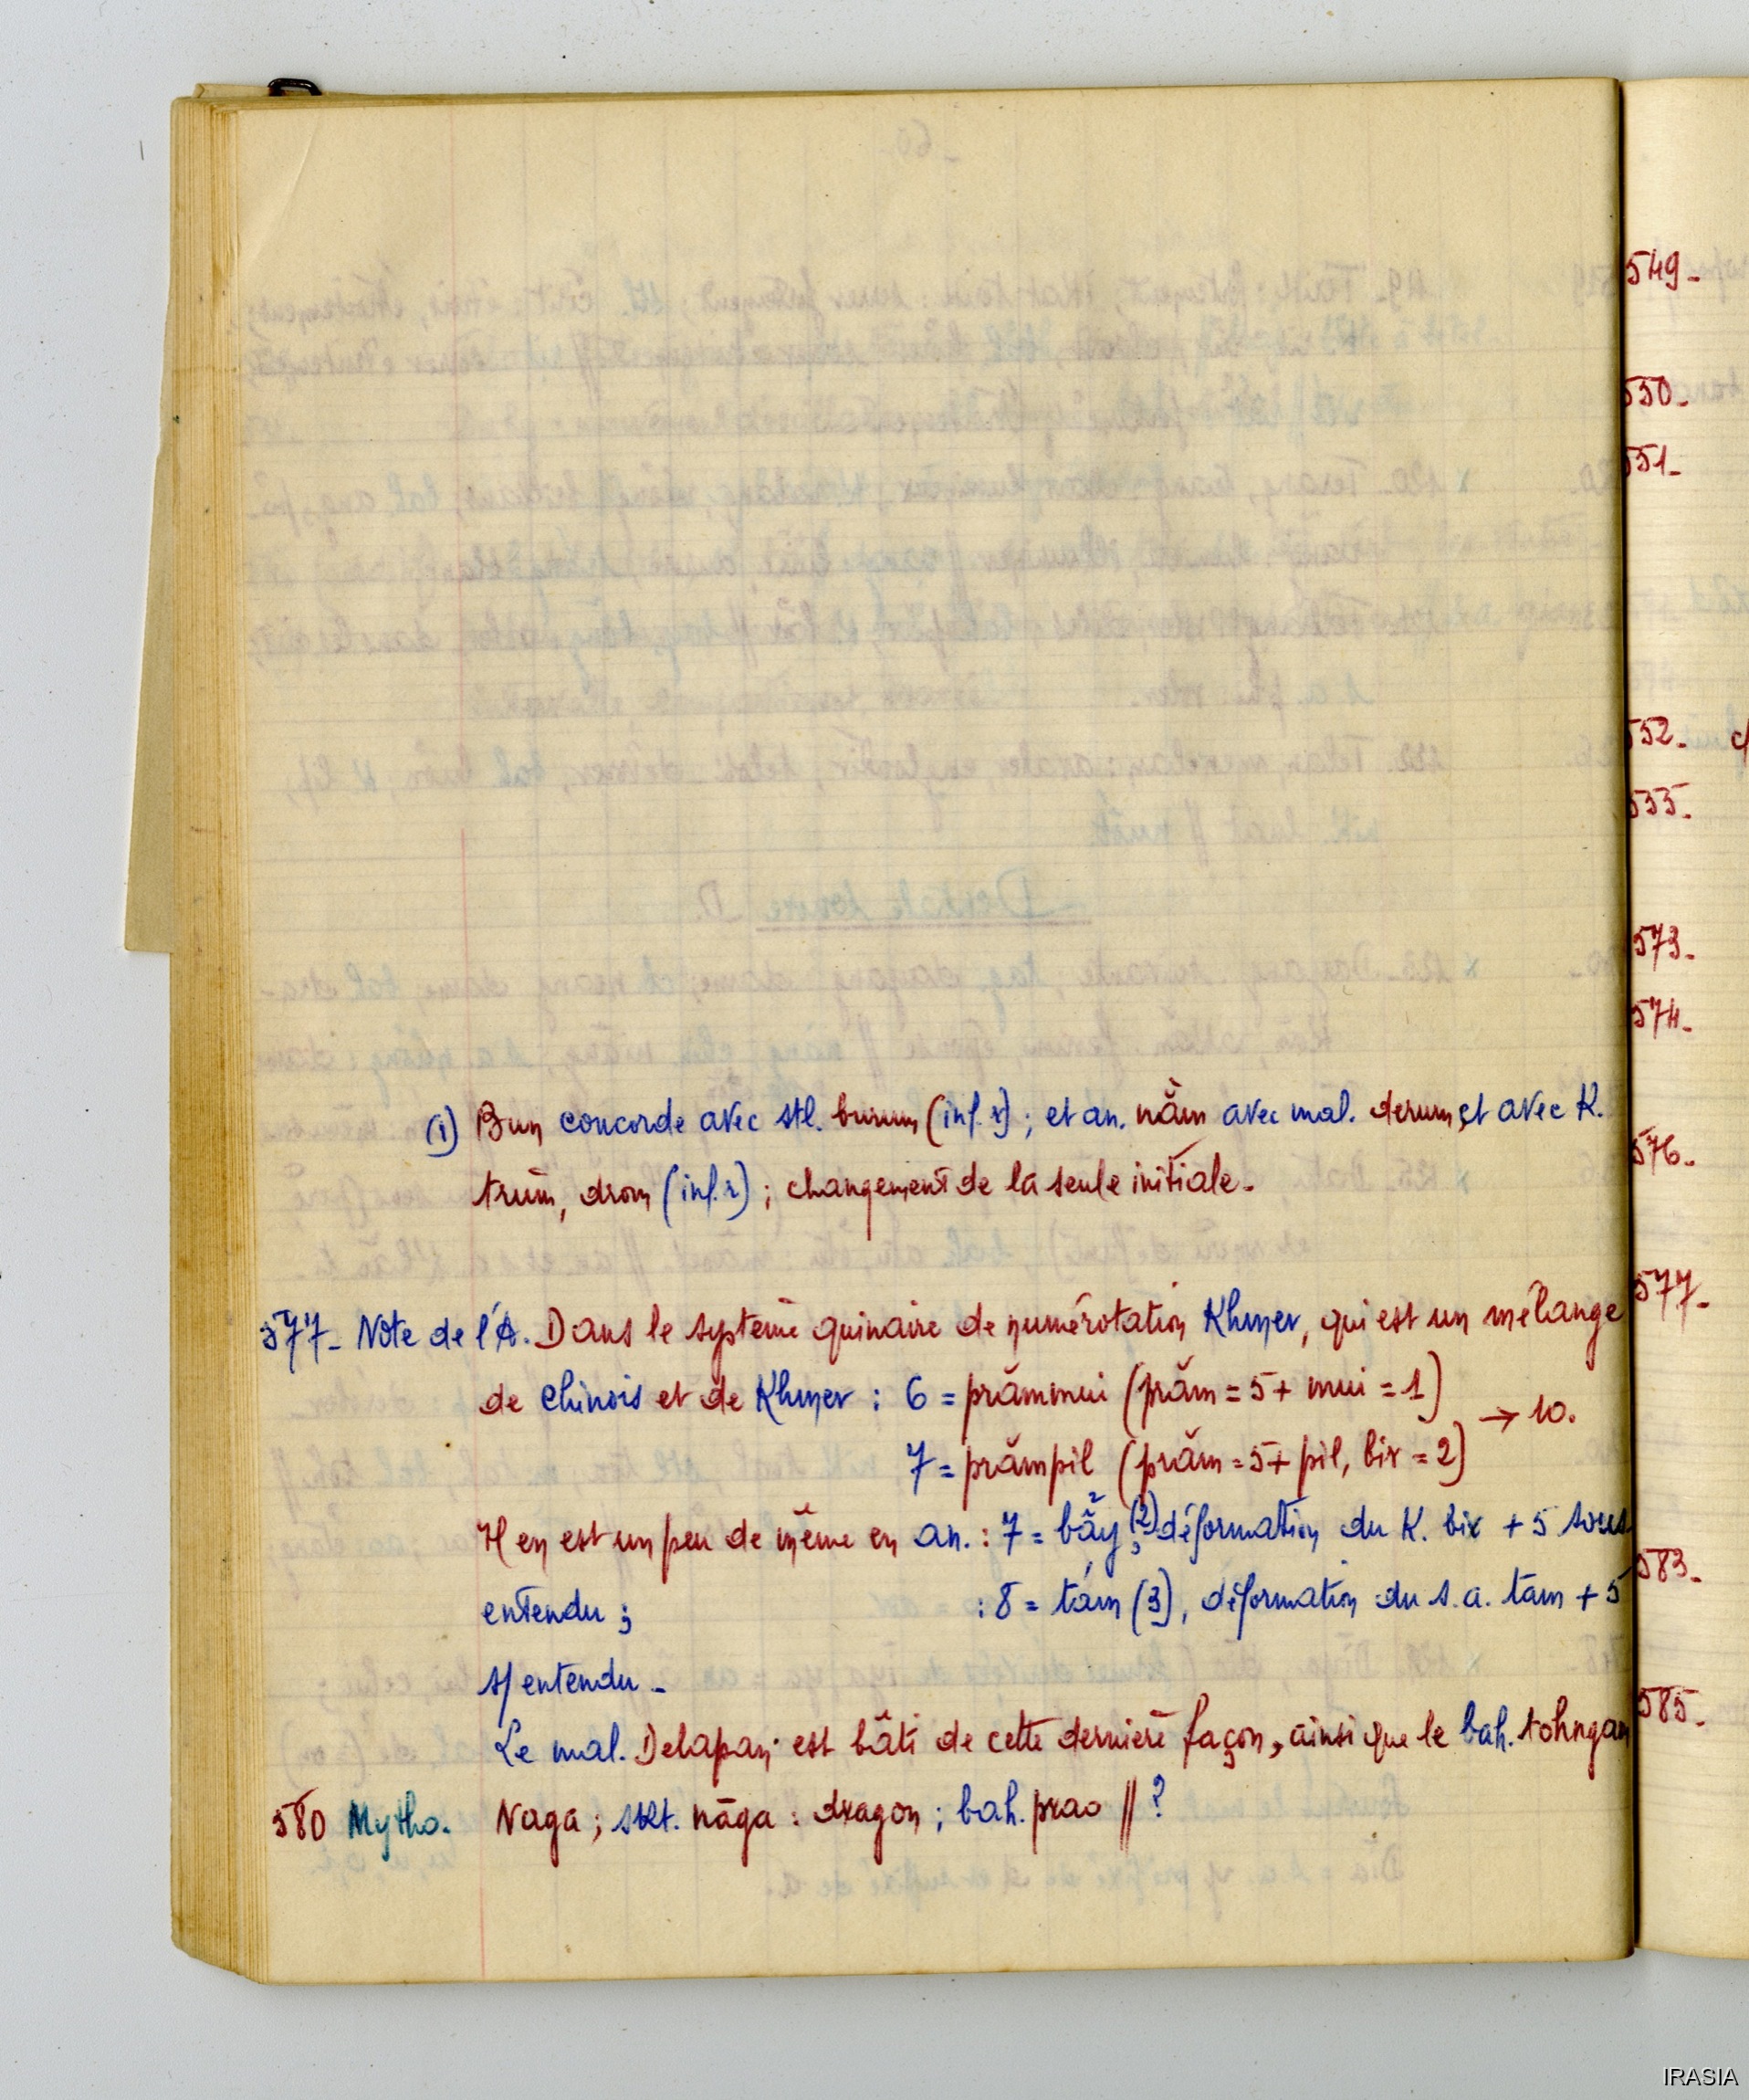 (1) Bun concorde avec stl. burum (inf. r) ; et an. nằm avec mal. derum, et avec K.
trŭm, drom (inf. r) ; changement de la seule initiale.
577 - Note de l'A. Dans le système quinaire de numérotation Khmer, qui est un mélange
de chinois et de Khmer : 6 = prămmui (prăm = 5 + mui = 1)
→ 10.
7 = prămpil (prăm = 5 + pil, bir = 2)
Il en est un peu de même en an. : 7 = bẩy (2), déformation du K. bir + 5 sous
entendu ; : 8 = tám (3), déformation du s.a. tam + 5
s/ entendu -
Le mal. Delapan est bâti de cette dernière façon, ainsi que le bah. tohngam
580 Mytho. Naga ; skt. nāga : dragon ; bah. prao // ?
549 -
550 -
551 -
552 -
573 -
574 -
576 -
577 -
583 -
585 -
IRASIA